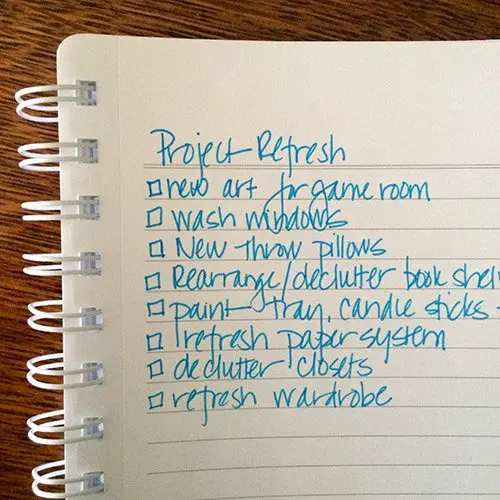 Project Refresh
☐ new art for game room
☐ wash windows
☐ New throw pillows
☐ Rearrange/declutter book shel
☐ paint tray, candle sticks
☐ refresh paper system
☐ declutter closets
☐ refresh wardrobe